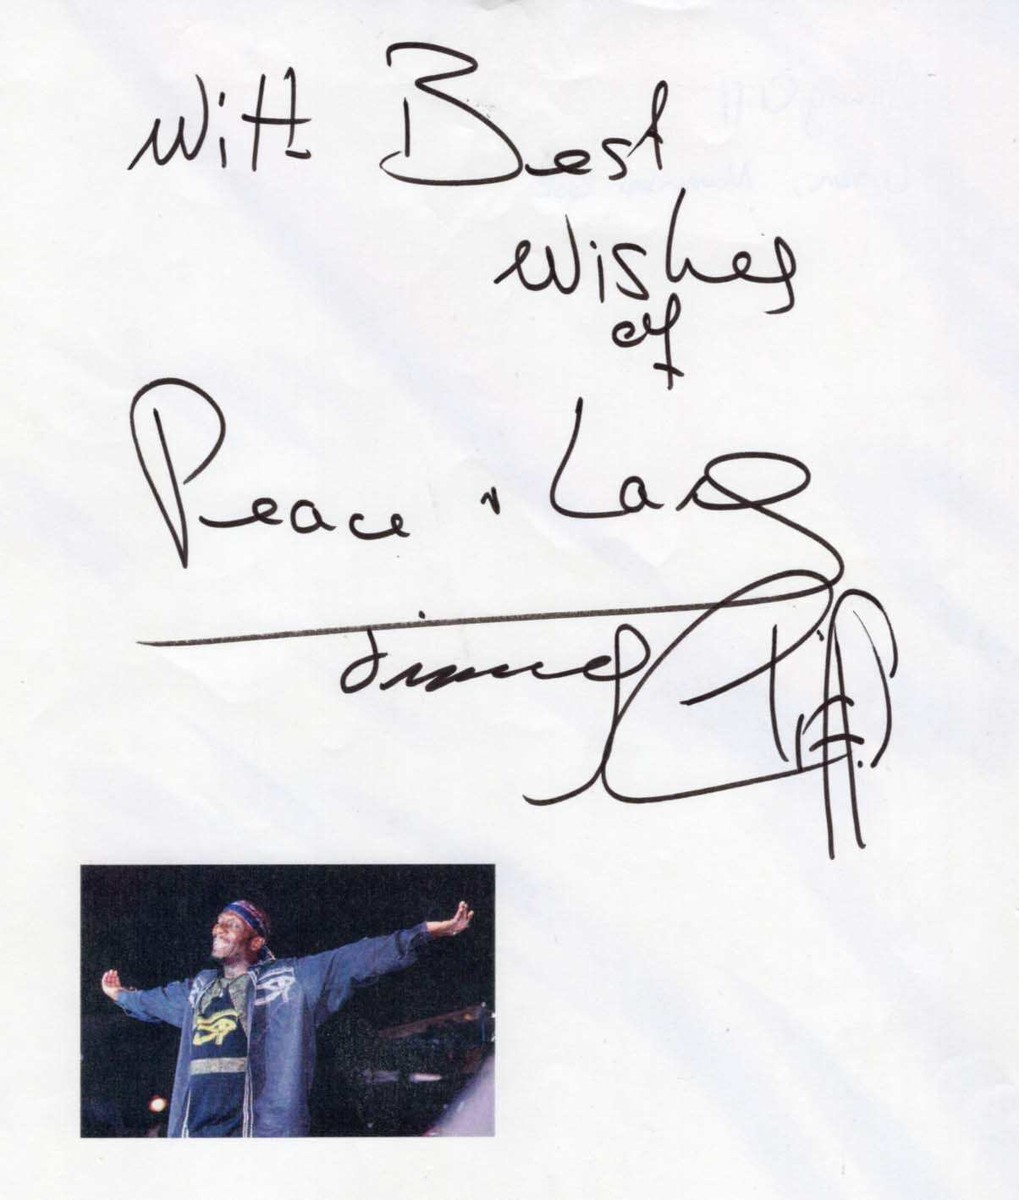 With Best
Wishes
of
Peace + Love
Jimmy Cliff